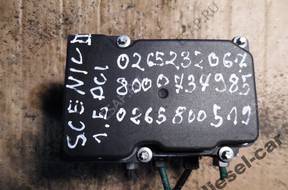 SCENIC II
1.5 DCI
0265232067
8000734985
0265800519
diesel-car